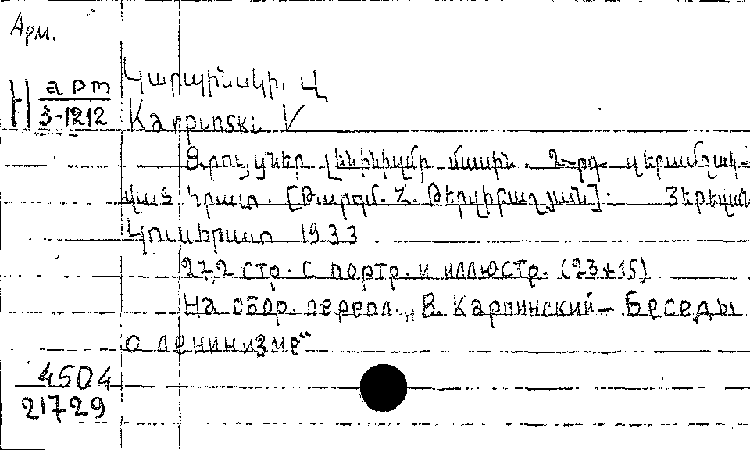 Арм.
Կարպինսկի, Վ
арт
3-1212
Karpinski V
Զրույցներ լենինիզմի մասին. 2-րդ վերամշակ-
ված հրատ. [Թարգմ. Հ. Թերզիբաշյան]. Յերեվան
Կուսհրատ 1933
272 стр. с портр. и иллюстр. (23×15)
На обор. перепл. „В. Карпинский – Беседы
о ленинизме“
4504
21729